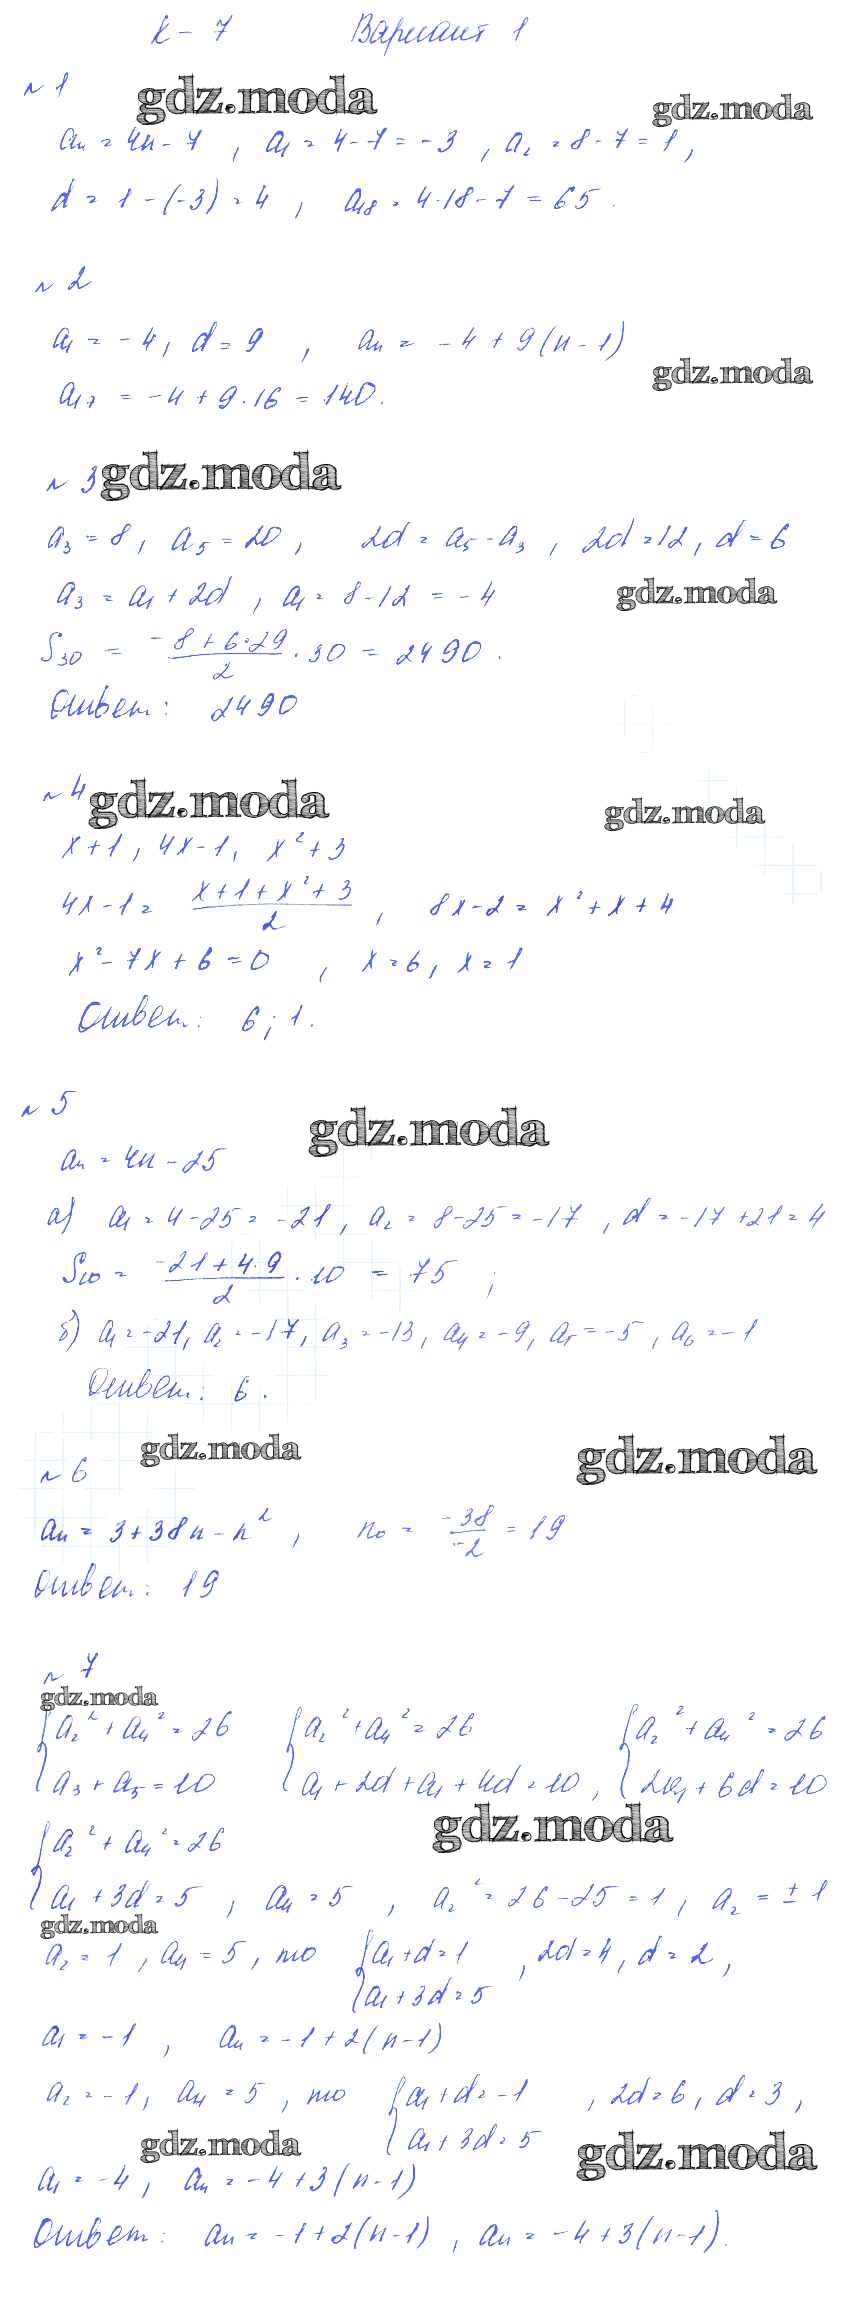 К – 7 Вариант 1
№ 1
gdz.moda gdz.moda
aₙ = 4n – 7 , a₁ = 4 – 7 = – 3 , a₂ = 8 – 7 = 1 ,
d = 1 – (–3) = 4 , a₁₈ = 4·18 – 7 = 65 .
№ 2
a₁ = – 4 , d = 9 , aₙ = – 4 + 9 (n – 1)
gdz.moda
a₁₇ = – 4 + 9 · 16 = 140 .
№ 3 gdz.moda
a₃ = 8 , a₅ = 20 , 2d = a₅ – a₃ , 2d = 12 , d = 6
a₃ = a₁ + 2d , a₁ = 8 – 12 = – 4 gdz.moda
S₃₀ = (– 8 + 6·29)/2 · 30 = 2490 .
Ответ: 2490
№ 4 gdz.moda gdz.moda
x + 1 , 4x – 1 , x² + 3
4x – 1 = (x + 1 + x² + 3)/2 , 8x – 2 = x² + x + 4
x² – 7x + 6 = 0 , x = 6 , x = 1
Ответ: 6 ; 1 .
№ 5
gdz.moda
aₙ = 4n – 25
а) a₁ = 4 – 25 = – 21 , a₂ = 8 – 25 = – 17 , d = – 17 + 21 = 4
S₁₀ = (– 21 + 4·9)/2 · 10 = 75 ;
б) a₁ = –21 , a₂ = –17 , a₃ = –13 , a₄ = –9 , a₅ = –5 , a₆ = –1
Ответ: 6 .
gdz.moda gdz.moda
№ 6
aₙ = 3 + 38n – n² , n₀ = –38/–2 = 19
Ответ: 19
№ 7
gdz.moda
{ a₂² + a₄² = 26 { a₂² + a₄² = 26 { a₂² + a₄² = 26
a₃ + a₅ = 10 a₁ + 2d + a₁ + 4d = 10 , 2a₁ + 6d = 10
gdz.moda
{ a₂² + a₄² = 26
a₁ + 3d = 5 , a₄ = 5 , a₂² = 26 – 25 = 1 , a₂ = ± 1
gdz.moda
a₂ = 1 , a₄ = 5 , то { a₁ + d = 1 , 2d = 4 , d = 2 ,
a₁ + 3d = 5
a₁ = – 1 , aₙ = – 1 + 2 (n – 1)
a₂ = – 1 , a₄ = 5 , то { a₁ + d = – 1 , 2d = 6 , d = 3 ,
a₁ + 3d = 5
gdz.moda gdz.moda
a₁ = – 4 , aₙ = – 4 + 3 (n – 1)
Ответ: aₙ = – 1 + 2 (n – 1) , aₙ = – 4 + 3 (n – 1) .